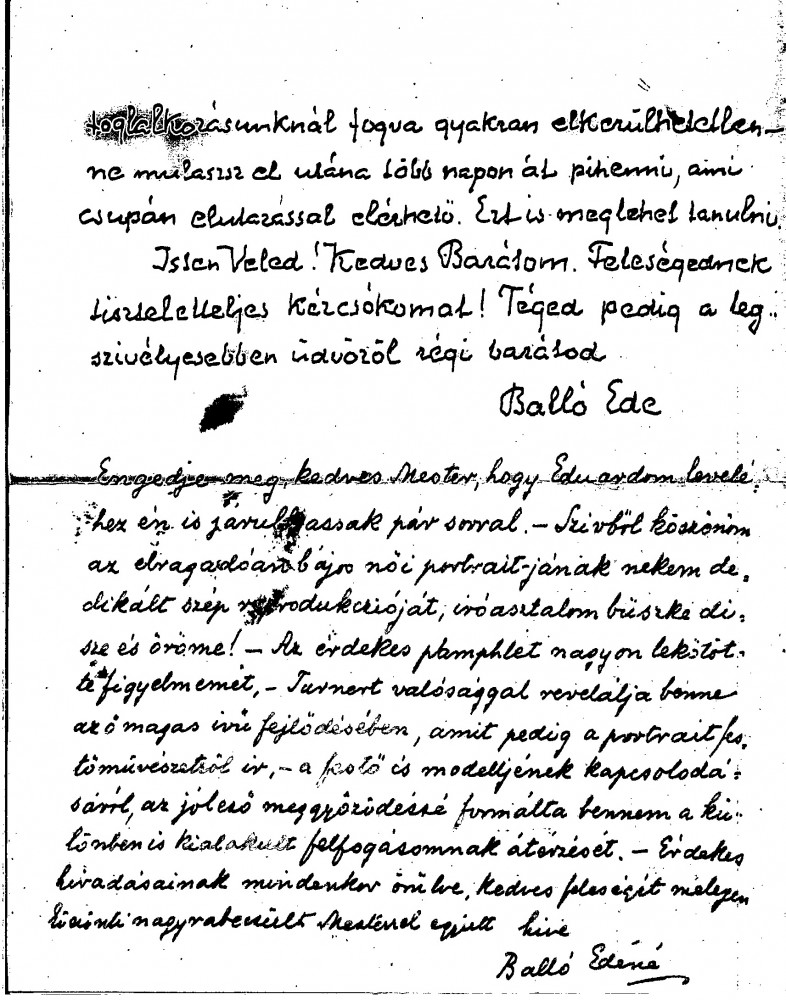 foglalkozásunknál fogva gyakran elkerülhetetlen—
ne mulassz el utána több napon át pihenni, ami
csupán elutazással elérhető. Ezt is meg lehet tanulni.
Isten Veled! Kedves Barátom. Feleségednek
tiszteletteljes kézcsókomat! Téged pedig a leg-
szivélyesebben üdvözöl régi barátod
Balló Ede
Engedje meg, kedves Mester, hogy Eduardom levelé-
hez én is járulhassak pár sorral. — Szivből köszönöm
az elragadóan bájos női portrait-jának nekem de-
dikált szép reprodukcióját, iróasztalom büszke di-
sze és öröme! — Az érdekes pamphlet nagyon lekötöt-
te figyelmemet, — Turnert valósággal revelálja benne
az ő magas ivü fejlődésében, amit pedig a portrait fes-
tőművészetről ir, — a festő és modelljének kapcsolodá-
sáról, az jóleső meggyőződéssé formálta bennem a kü-
lönben is kialakult felfogásomnak átérzését. — Érdekes
hiradásainak mindenkor örülve, kedves feleségét melegen
köszönti nagyrabecsült Mesterrel együtt hive
Balló Edéné